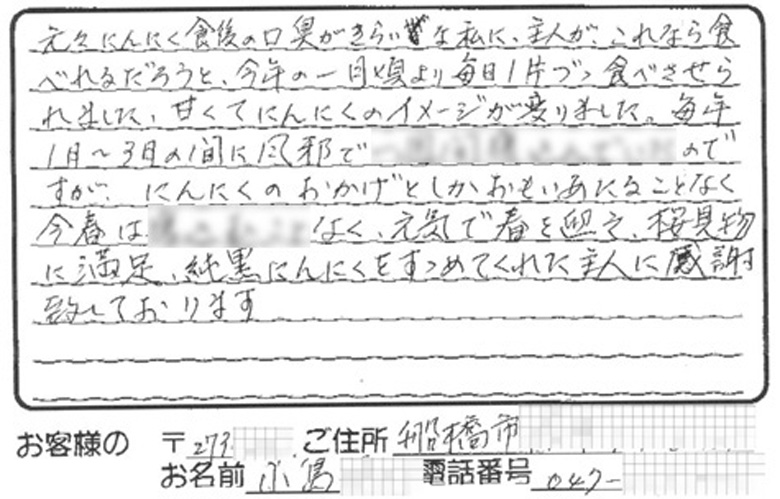 元々にんにく食後の口臭がきらいな私に、主人が、これなら食
べれるだろうと、今年の一月頃より毎日1片づつ食べさせら
れました、甘くてにんにくのイメージが変りました。毎年
1月〜3月の間に風邪で
ので
すが、にんにくのおかげとしかおもいあたることなく
今春は
なく、元気で春を迎え、桜見物
に満足、純黒にんにくをすゝめてくれた主人に感謝
致しております
お客様の 〒273 ご住所 船橋市
お名前 小島 電話番号 047-